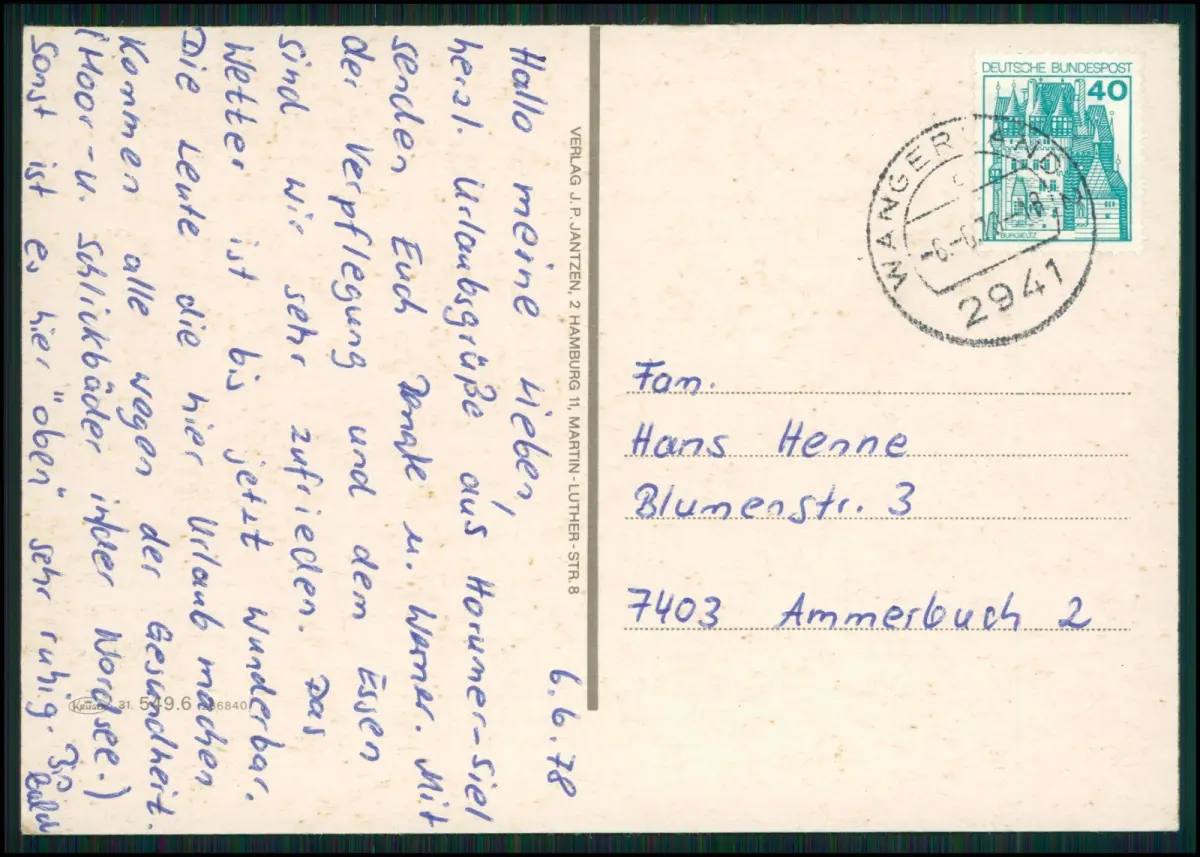 6.6.78
Hallo meine Lieben,
herzl. Urlaubsgrüße aus Horumer-Siel
senden Euch Renate u. Werner. Mit
der Verpflegung und dem Essen
sind wir sehr zufrieden. Das
Wetter ist bis jetzt wunderbar.
Die Leute die hier Urlaub machen
kommen alle wegen der Gesundheit.
(Moor-u. Schlickbäder in der Nordsee.)
Sonst ist es hier "oben" sehr ruhig. Bis
bald
VERLAG J. P. JANTZEN, 2 HAMBURG 11, MARTIN-LUTHER-STR. 8
Krüger 31. 549.6 86840
DEUTSCHE BUNDESPOST
40
BURG ELTZ
WANGERLAND
2941
Fam.
Hans Henne
Blumenstr. 3
7403 Ammerbuch 2